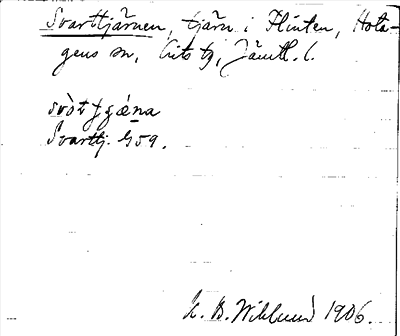 Svarttjärnen, tjärn i Flinten, Hota-
gens sn, Lits tg, Jämtl. l.
svòt
Svarttj. G59.
K. B. Wiklund 1906.